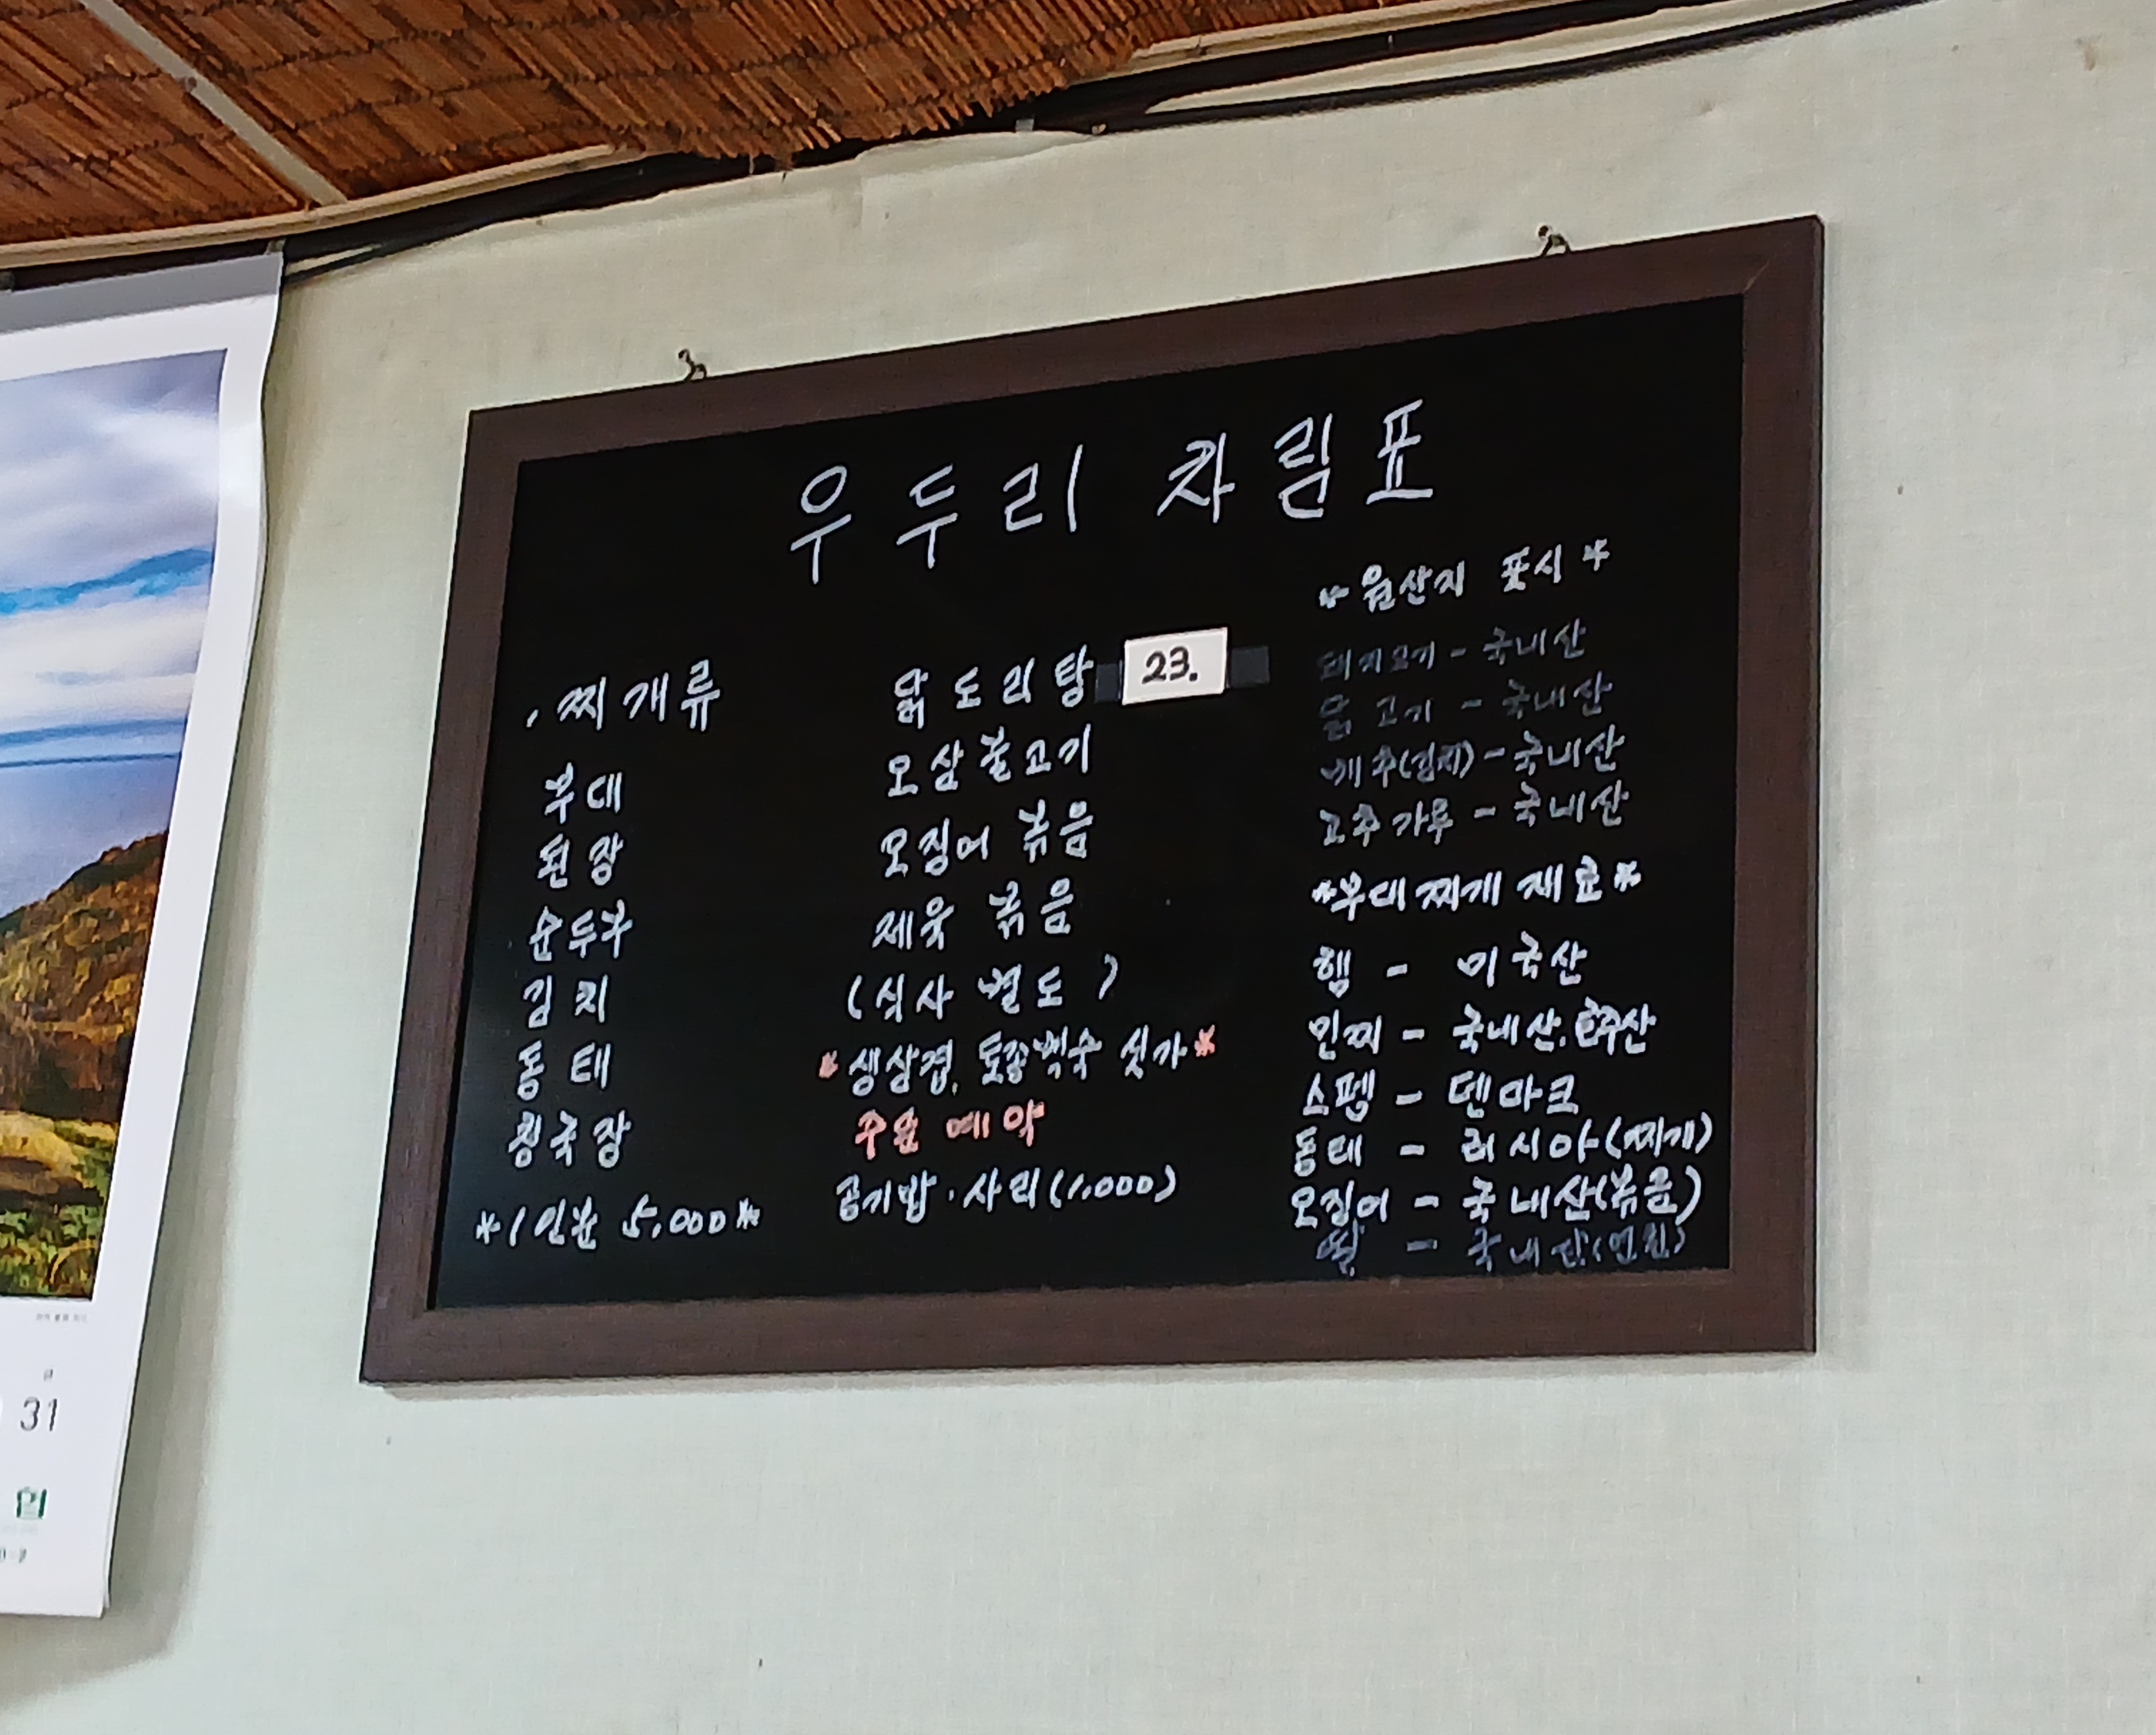 우두리 차림표
찌개류
부대
된장
순두부
김치
동태
청국장
*1인분 5,000*
닭도리탕 23.
오삼불고기
오징어 볶음
제육 볶음
(식사 별도)
*생삼겹, 토종백숙 싯가*
주문 예약
공기밥·사리(1,000)
*원산지 표시*
돼지고기 - 국내산
닭고기 - 국내산
배추(김치) - 국내산
고추가루 - 국내산
*부대찌개 재료*
햄 - 미국산
민찌 - 국내산, 호주산
스팸 - 덴마크
동태 - 러시아(찌개)
오징어 - 국내산(볶음)
쌀 - 국내산
31